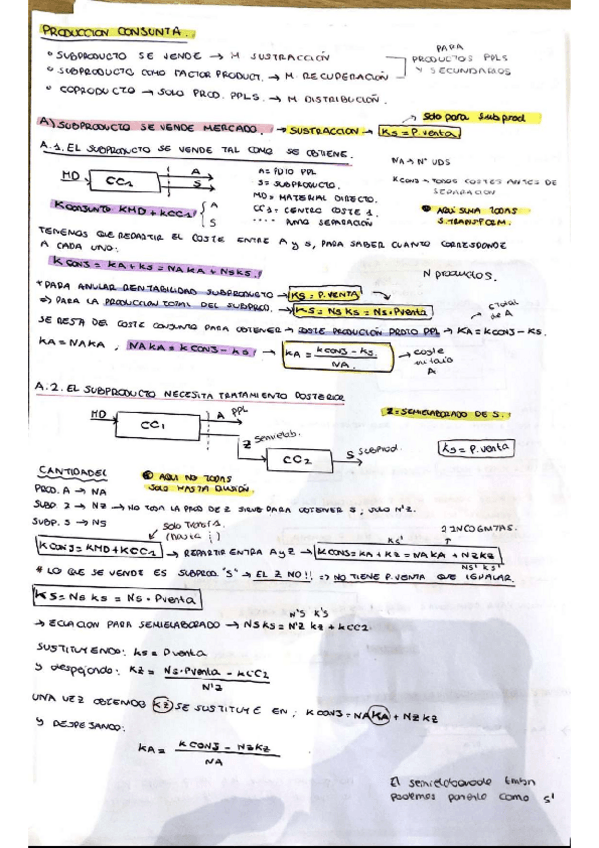 PRODUCCION CONJUNTA..
• SUBPRODUCTO SE VENDE → M SUSTRACCIÓN
• SUBPRODUCTO COMO FACTOR PRODUCT. → M. RECUPERACIÓN
• COPRODUCTO → SOLO PROD. PPLS. → M DISTRIBUCIÓN.
PARA PRODUCTOS PPLS Y SECUNDARIOS
Solo para subprod
A) SUBPRODUCTO SE VENDE MERCADO. → SUSTRACCION → Ks = P. venta
A.1. EL SUBPRODUCTO SE VENDE TAL COMO SE OBTIENE.
MD → CC1 → A
S
A = PDTO PPL
S = SUBPRODUCTO.
MD = MATERIAL DIRECTO.
CC1 = CENTRO COSTE 1.
SEPARACIÓN
NA → Nº UDS
KCONJ → TODOS COSTES ANTES DE SEPARACION
AQUI SUMA TODAS S. TRANSFORM.
KCONJUNTO KMD + KCC1 { A
S
TENEMOS QUE REPARTIR EL COSTE ENTRE A y S, PARA SABER CUANTO CORRESPONDE
A CADA UNO:
KCONJ = KA + KS = NAKA + NSKS.
N productos.
* PARA ANULAR RENTABILIDAD SUBPRODUCTO → KS = P. VENTA
⇒ PARA LA PRODUCCION TOTAL DEL SUBPROD. → KS = NS KS = NS · Pventa
C. Total de A
SE RESTA DEL COSTE CONJUNTO PARA OBTENER → COSTE PRODUCIÓN PRDTO PPL → KA = KCONJ - KS.
KA = NAKA, NAKA = KCONJ - KS → KA = KCONJ - KS. / NA. → coste unitario A
A.2. EL SUBPRODUCTO NECESITA TRATAMIENTO POSTERIOR
MD → CC1 → A PPL
Z semielab.
CC2 → S subprod.
Z = SEMIELABORADO DE S.
Ks = P. venta
CANTIDADES
AQUI NO TODAS SOLO HASTA DIVISIÓN.
PROD. A → NA
SUBP. Z → NZ → NO TODA LA PROD DE Z SIRVE PARA OBTENER S, SOLO N'Z.
SUBP. S → NS
solo Transf 1.
2 INCOGNITAS.
KS'
KCONJ = KMD + KCC1 → REPARTIR ENTRA A y Z → KCONJ = KA + KZ = NAKA + NZKZ
NS' KS'
# LO QUE SE VENDE ES SUBPROD "S" → EL Z NO!! ⇒ NO TIENE P. VENTA QUE IGUALAR.
KS = NS KS = NS · Pventa
N'S K'S
→ ECUACION PARA SEMIELABORADO → NS KS = N'Z KZ + KCC2
SUSTITUYENDO: KS = P venta
y despejando: KZ = NS · Pventa - KCC2 / N'Z
UNA VEZ OBTENEMOS KZ SE SUSTITUYE EN: KCONJ = NAKA + NZKZ
Y DESPEJANDO:
KA = KCONJ - NZKZ / NA
El semielaborado tmbn
podemos ponerlo como S'